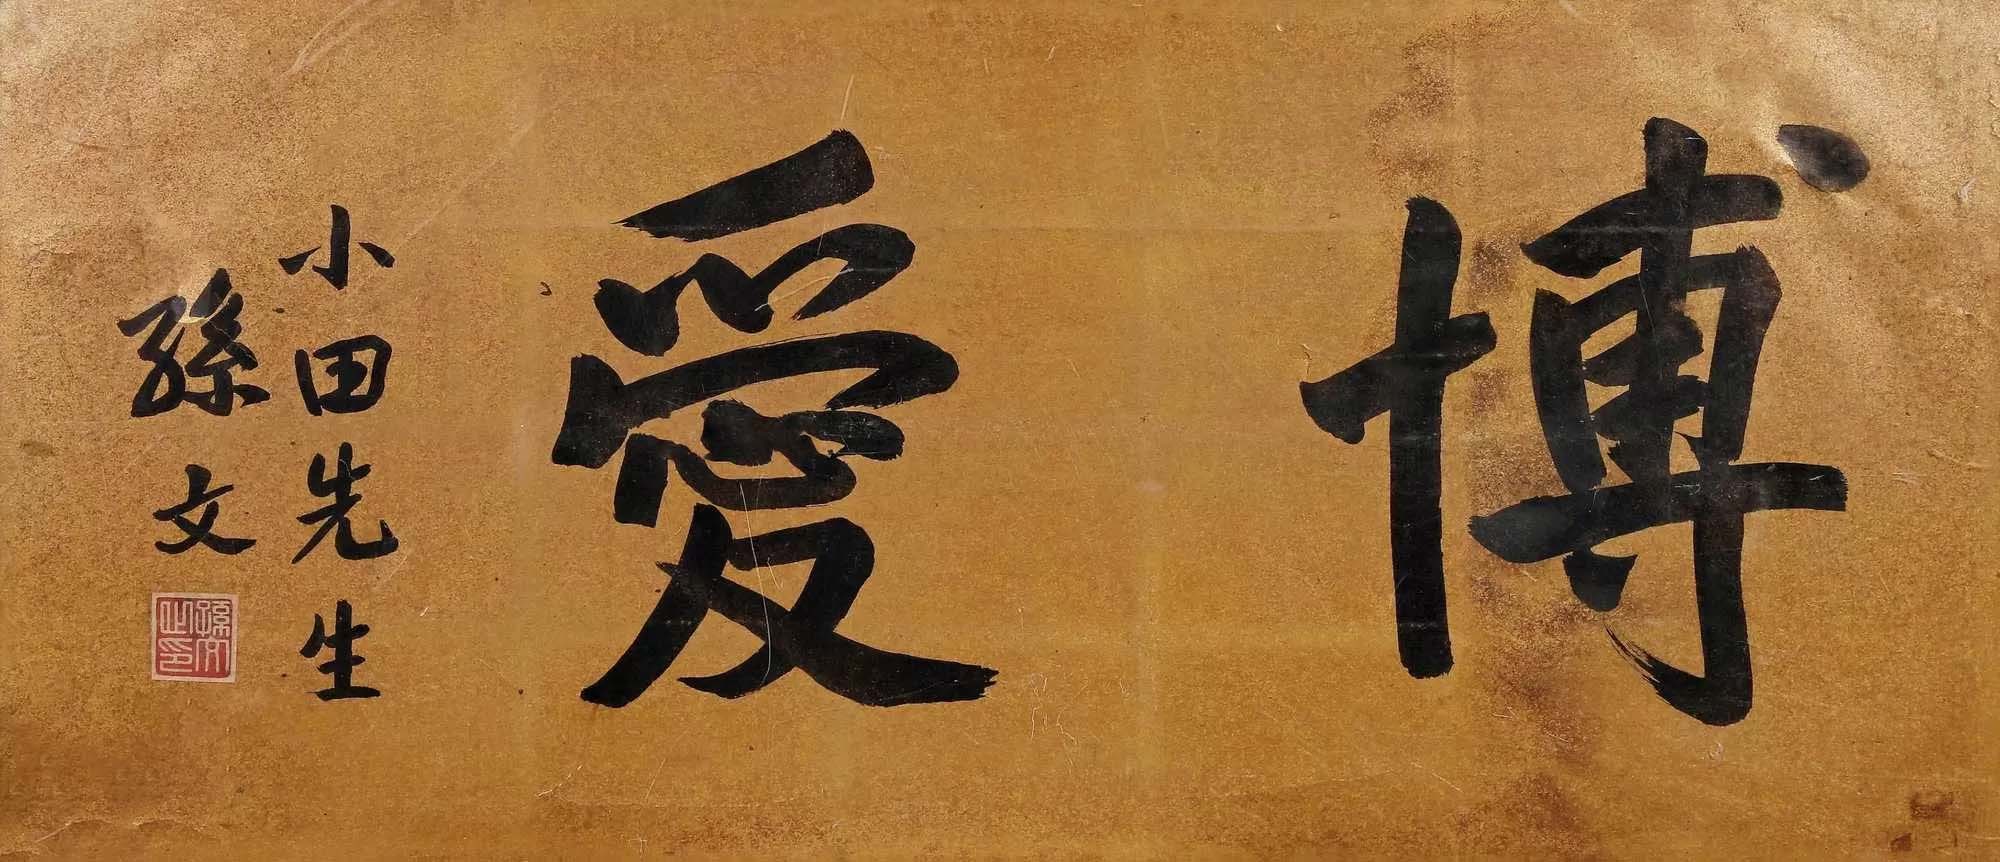 博愛
小田先生
孫文
孫文之印